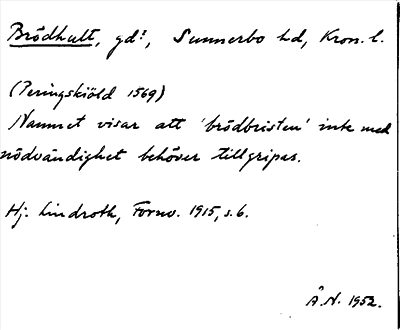 Brödhult, gd?, Sunnerbo hd, Kron. l.
(Peringskiöld 1569)
Namnet visar att 'brödbristen' inte med
nödvändighet behöver tillgripas.
Hj. Lindroth, Fornv. 1915, s. 6.
Å. N. 1952.